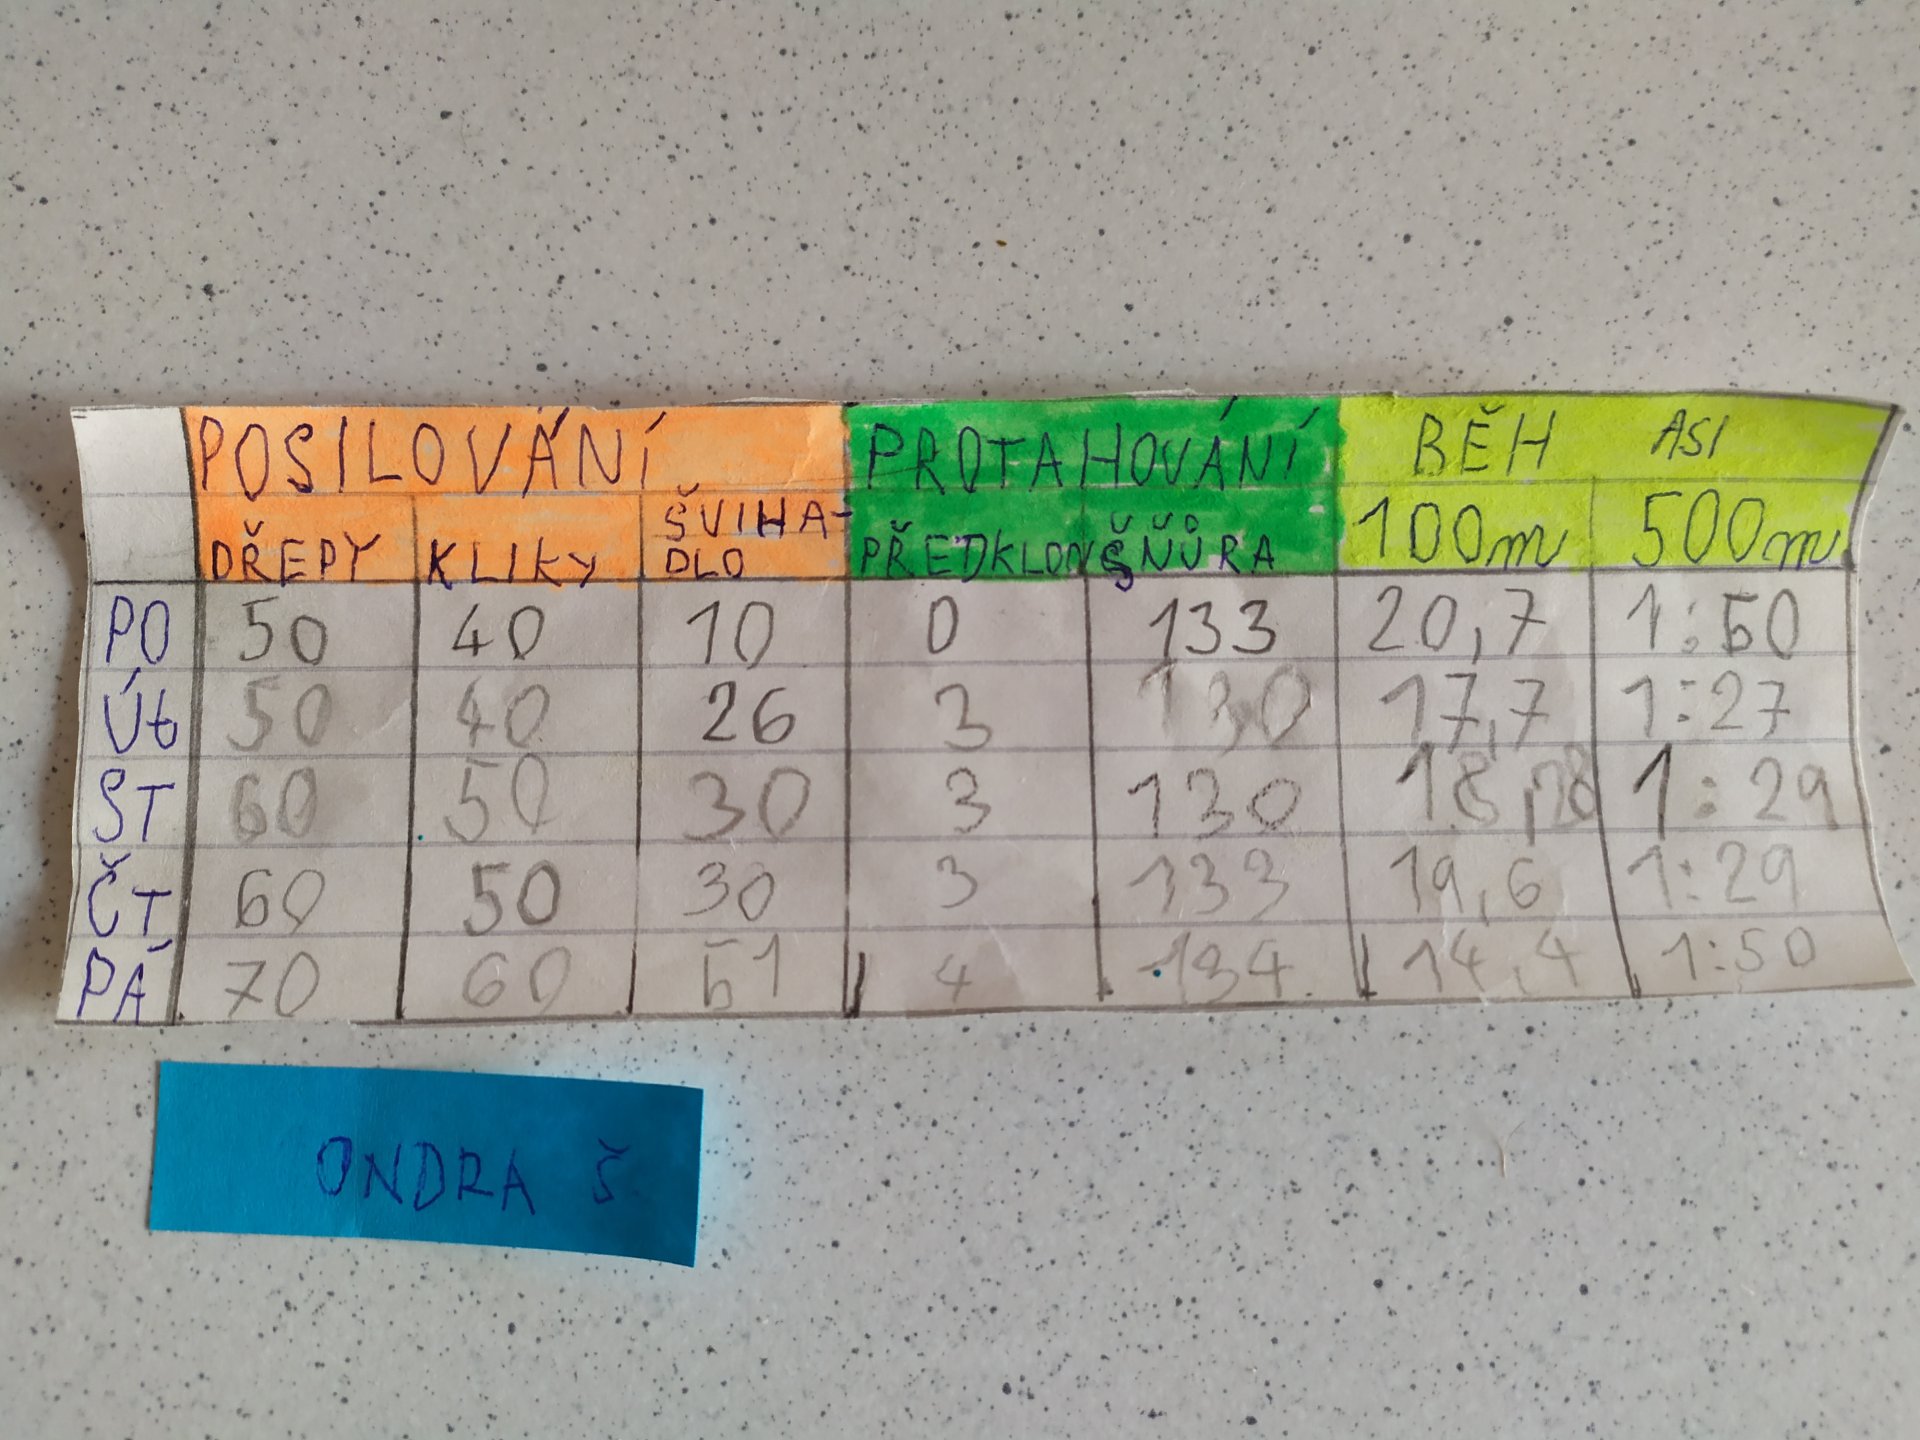 POSILOVÁNÍ PROTAHOVÁNÍ BĚH ASI
DŘEPY KLIKY ŠVIHA-DLO PŘEDKLON ŠŇŮRA 100m 500m
PO 50 40 10 0 133 20,7 1:50
Út 50 40 26 3 130 17,7 1:27
ST 60 50 30 3 130 1:29
ČT 60 50 30 3 133 19,6 1:29
PÁ 70 60 51 4 134 14,4 1:50
ONDRA Š